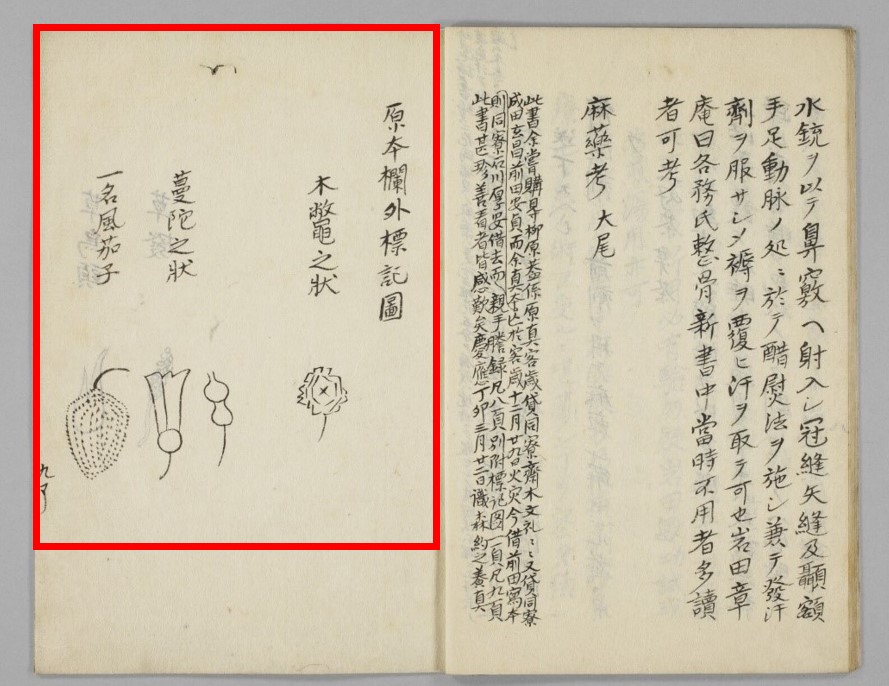 水銃ヲ以テ鼻竅ヘ射入シ冠縫矢縫及顳額
手足動脉ノ処ニ於テ醋熨法ヲ施シ兼テ發汗
劑ヲ服サシメ褥ヲ覆ヒ汗ヲ取テ可也岩田章
庵曰各務氏整骨新書中當時不用者多讀
者可考
麻藥考 大尾
此書余嘗購得柳原蓋係原真客歳貸同寮齋木文礼〻又貸同寮
成田玄昌前田安貞而余真本亡於客歳十二月廿九日火灾今借前田寫本
則同寮石川厚安借去而親手謄録凡八頁別附標記図一頁凡九頁
此書甚珍善看者皆感歎矣慶應丁卯三月廿二日識森約之養真
原本欄外標記圖
木鼈之状
蔓陀之狀
一名風茄子
九丁